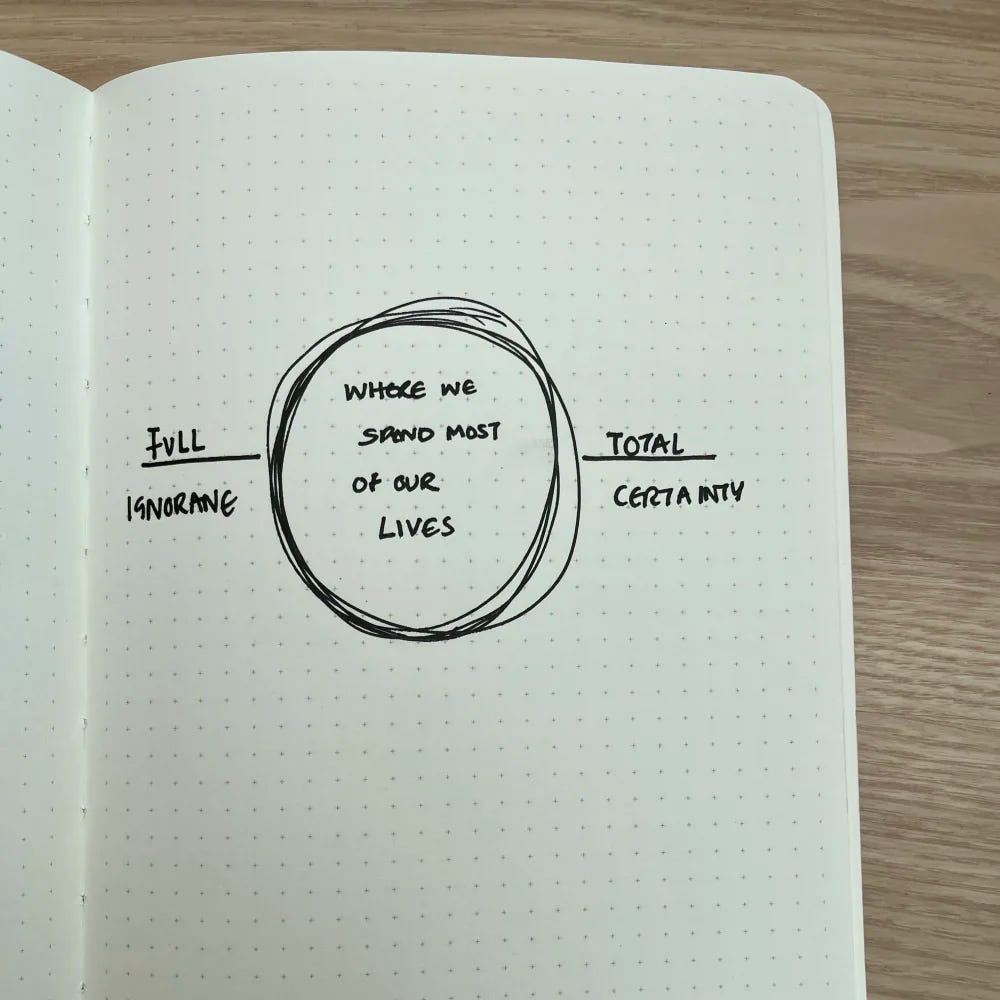 FULL
IGNORANE
WHERE WE
SPEND MOST
OF OUR
LIVES
TOTAL
CERTAINTY